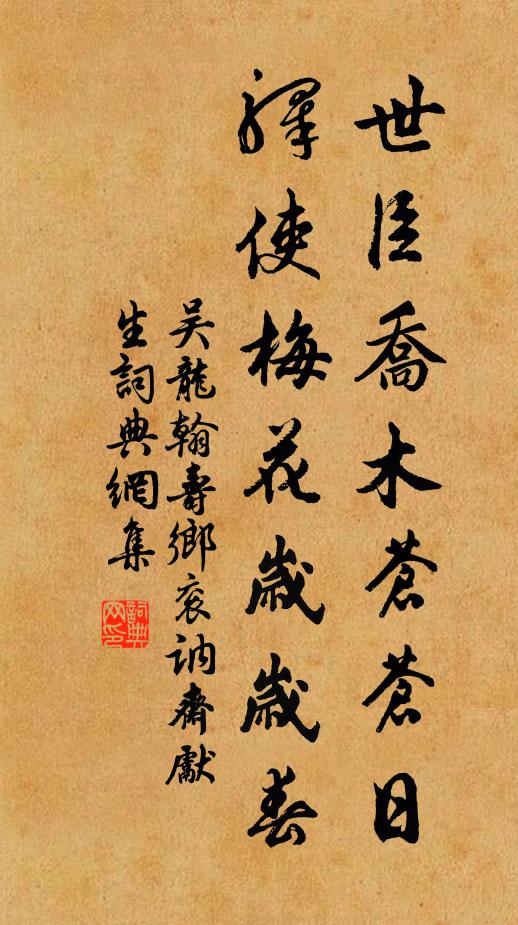 世臣喬木蒼蒼日
驛使梅花歲歲春
吴龍翰壽鄉衮讷齋獻
生詞典網集
詞典網印